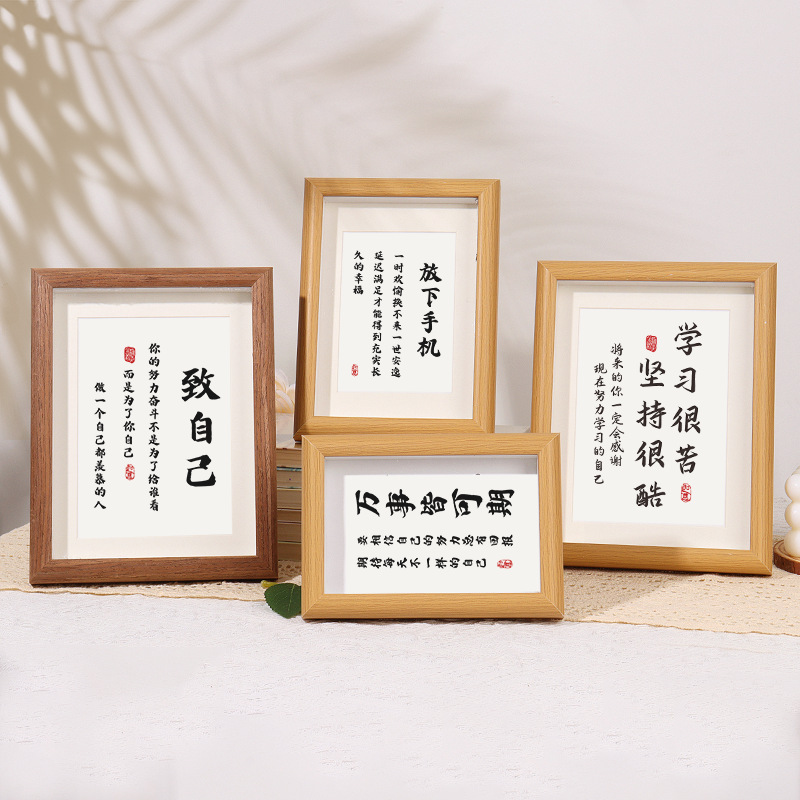 致自己
你的努力奋斗不是为了给谁看
而是为了你自己
做一个自己都羡慕的人
放下手机
一时欢愉换不来一世安逸
延迟满足才能得到充实长
久的幸福
万事皆可期
要相信自己的努力总有回报
期待每天不一样的自己
学习很苦
坚持很酷
将来的你一定会感谢
现在努力学习的自己